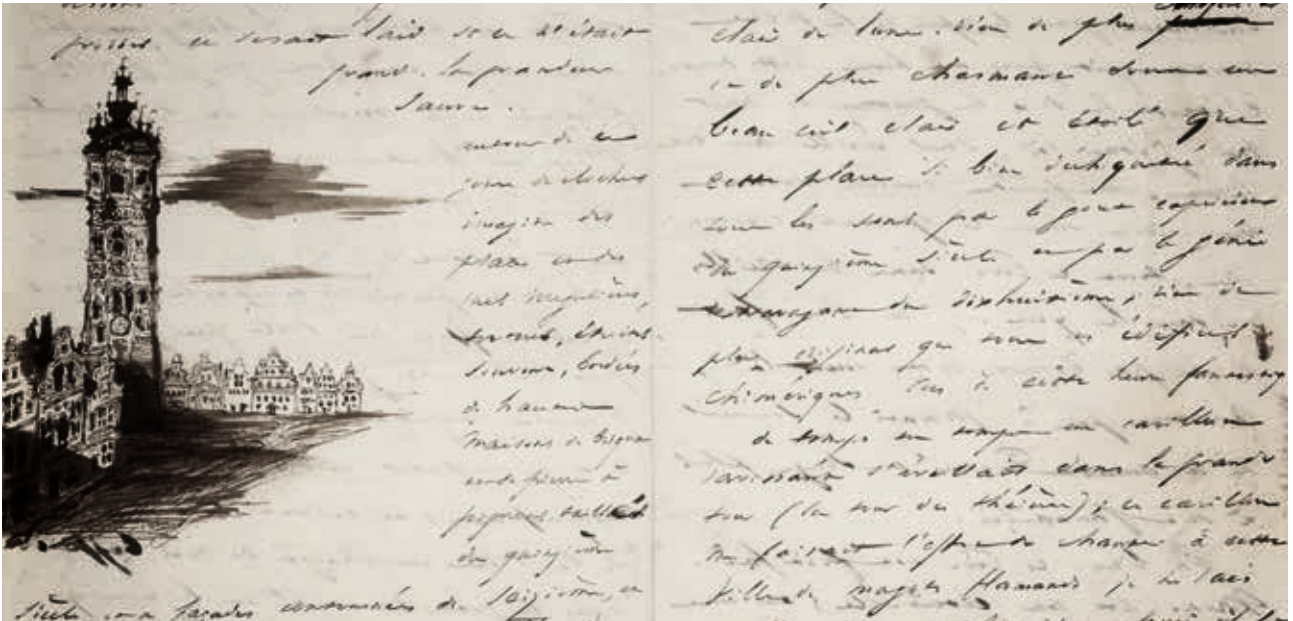 grosses. ce serait laid si ce n'était
grand. la grandeur
sauve.
autour de ce
genre de clochers
imaginez des
places et des
rues irrégulières,
tortues, étroites
souvent, bordées
de hautes
maisons de brique
et de pierre à
pignons taillés
du quinzième
siècle et à façades contournées du seizième, et
clair de lune. rien de plus
de plus charmant sous un
beau ciel clair et étoilé que
cette place si bien déchiquetée dans
tous les sens par le goût capricieux
du quinzième siècle et par le génie
extravagant du dixhuitième ; rien de
plus original que tous ces édifices
chimériques vus à cette heure
de temps en temps un carillon
ravissant s'éveillait dans la grande
tour (la tour des théières) ; ce carillon
me faisait l'effet de chanter à cette
ville de magots flamands je ne sais